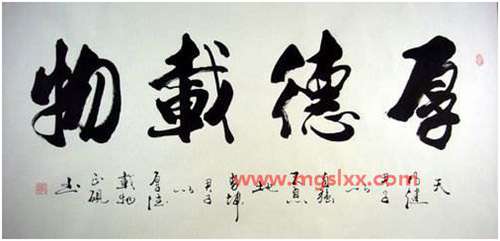 厚德載物
天行健君子以自强不息地势坤君子以厚德載物 书
www.mgslxx.com